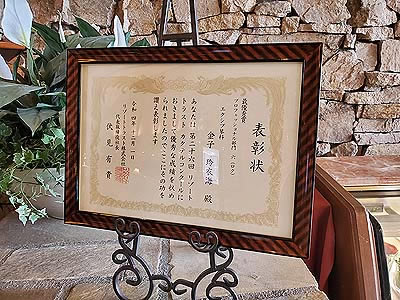 表彰状
最優秀賞
プロフェッショナル部門
エクシブ鳥羽
金子 玲衣海 殿
あなたは第二十六回リゾート
トラストカクテルコンクールに
おきまして優秀な成績を収め
られましたのでここにその功を
讃え表彰します
令和四年十二月一日
リゾートトラスト株式会社
代表取締役社長
伏見有貴